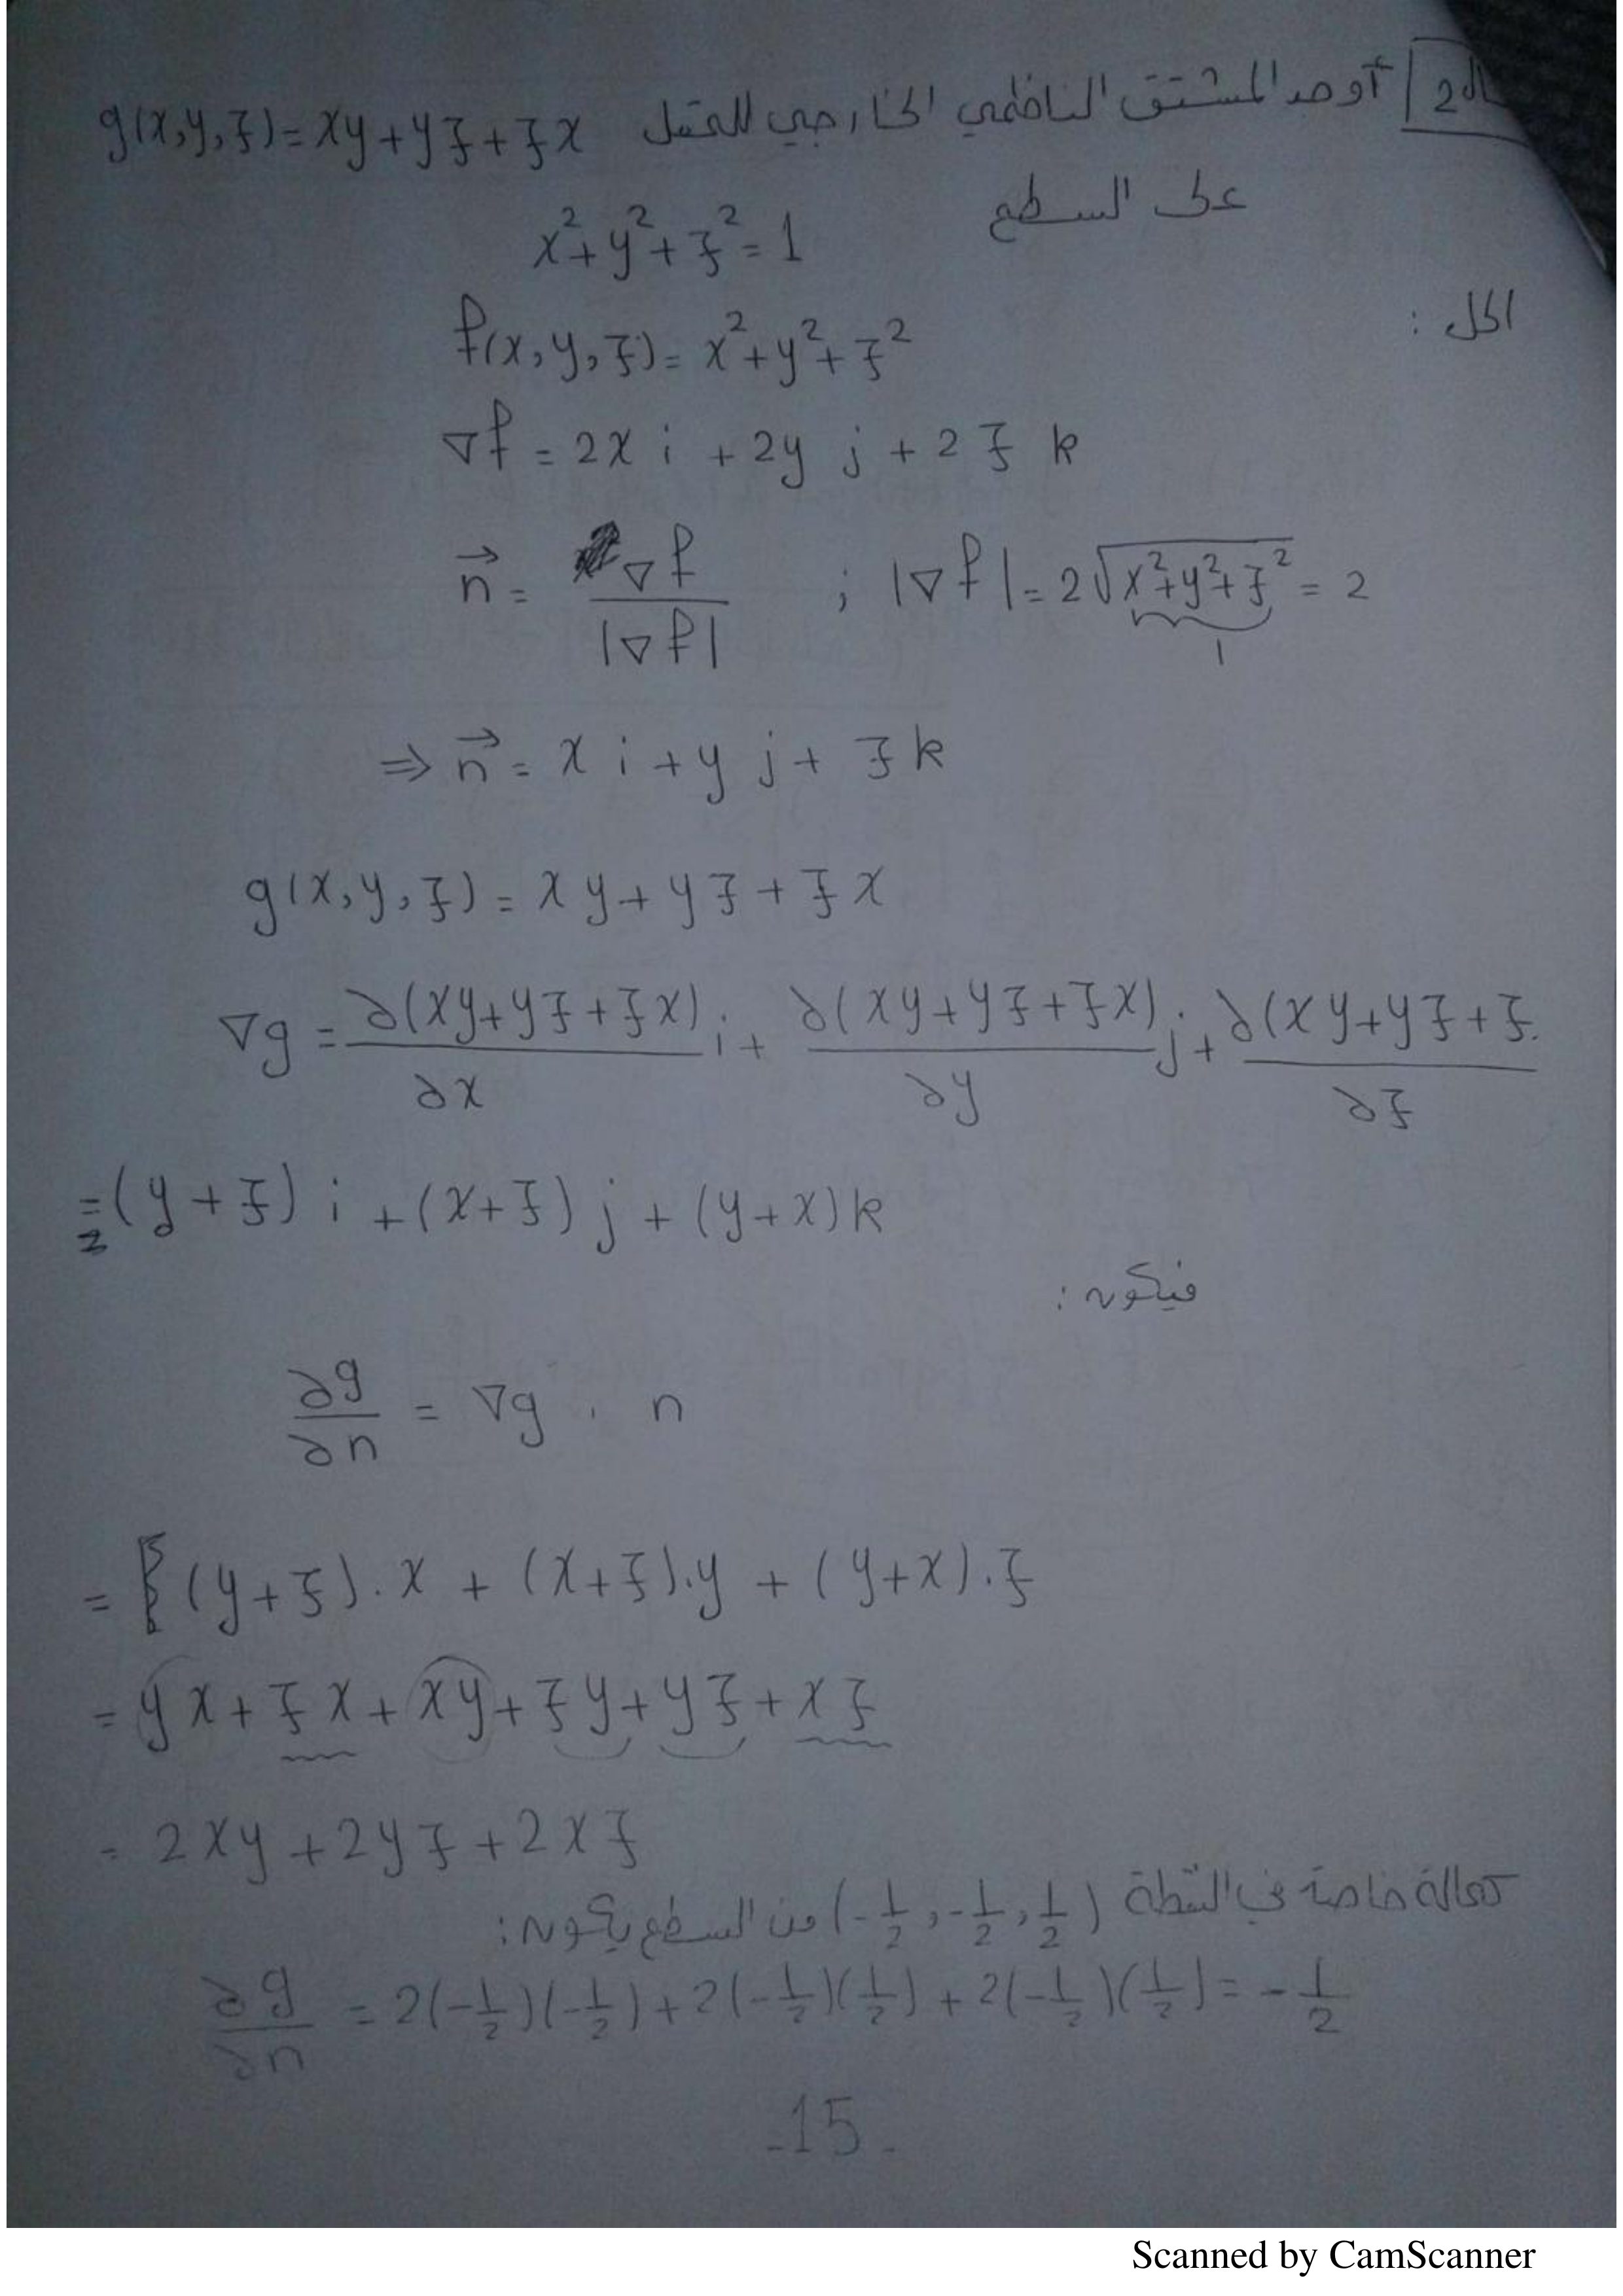 ـال2 / أوجد المشتق الناظمي الخارجي للحقل g(x,y,z)=xy+yz+zx
على السطح
x²+y²+z²=1
الحل :
f(x,y,z)=x²+y²+z²
∇f=2x i +2y j+2z k
n⃗=∇f/|∇f| ; |∇f|=2√(x²+y²+z²)=2
1
⇒ n⃗=x i+y j+z k
g(x,y,z)=xy+yz+zx
∇g=∂(xy+yz+zx)/∂x i+∂(xy+yz+zx)/∂y j+∂(xy+yz+z./∂z
=(y+z) i+(x+z) j+(y+x)k
فيكون:
∂g/∂n=∇g . n
=(y+z).x+(x+z).y+(y+x).z
=yx+zx+xy+zy+yz+xz
=2xy+2yz+2xz
كحالة خاصة في النقطة (-1/2,-1/2,1/2) من السطح يكون:
∂g/∂n=2(-1/2)(-1/2)+2(-1/2)(1/2)+2(-1/2)(1/2)=-1/2
-15-
Scanned by CamScanner